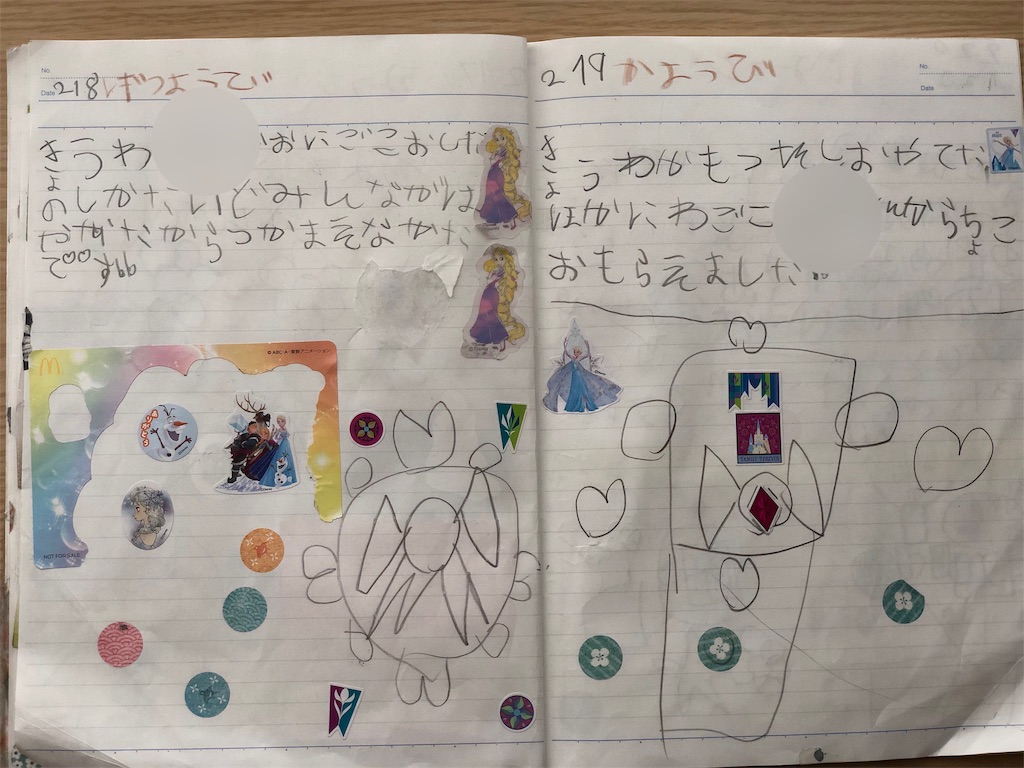 No.
Date
218 げつようび
きょうわ おにごごこおした
のしかた いどみんなながは
やかたからつかまえなかた
で
219 かようび
No.
Date
きょうわかもつれしおやてた
ほかにわごこ からちょこ
おもらえました。
© ABC-A・東映アニメーション
NOT FOR SALE